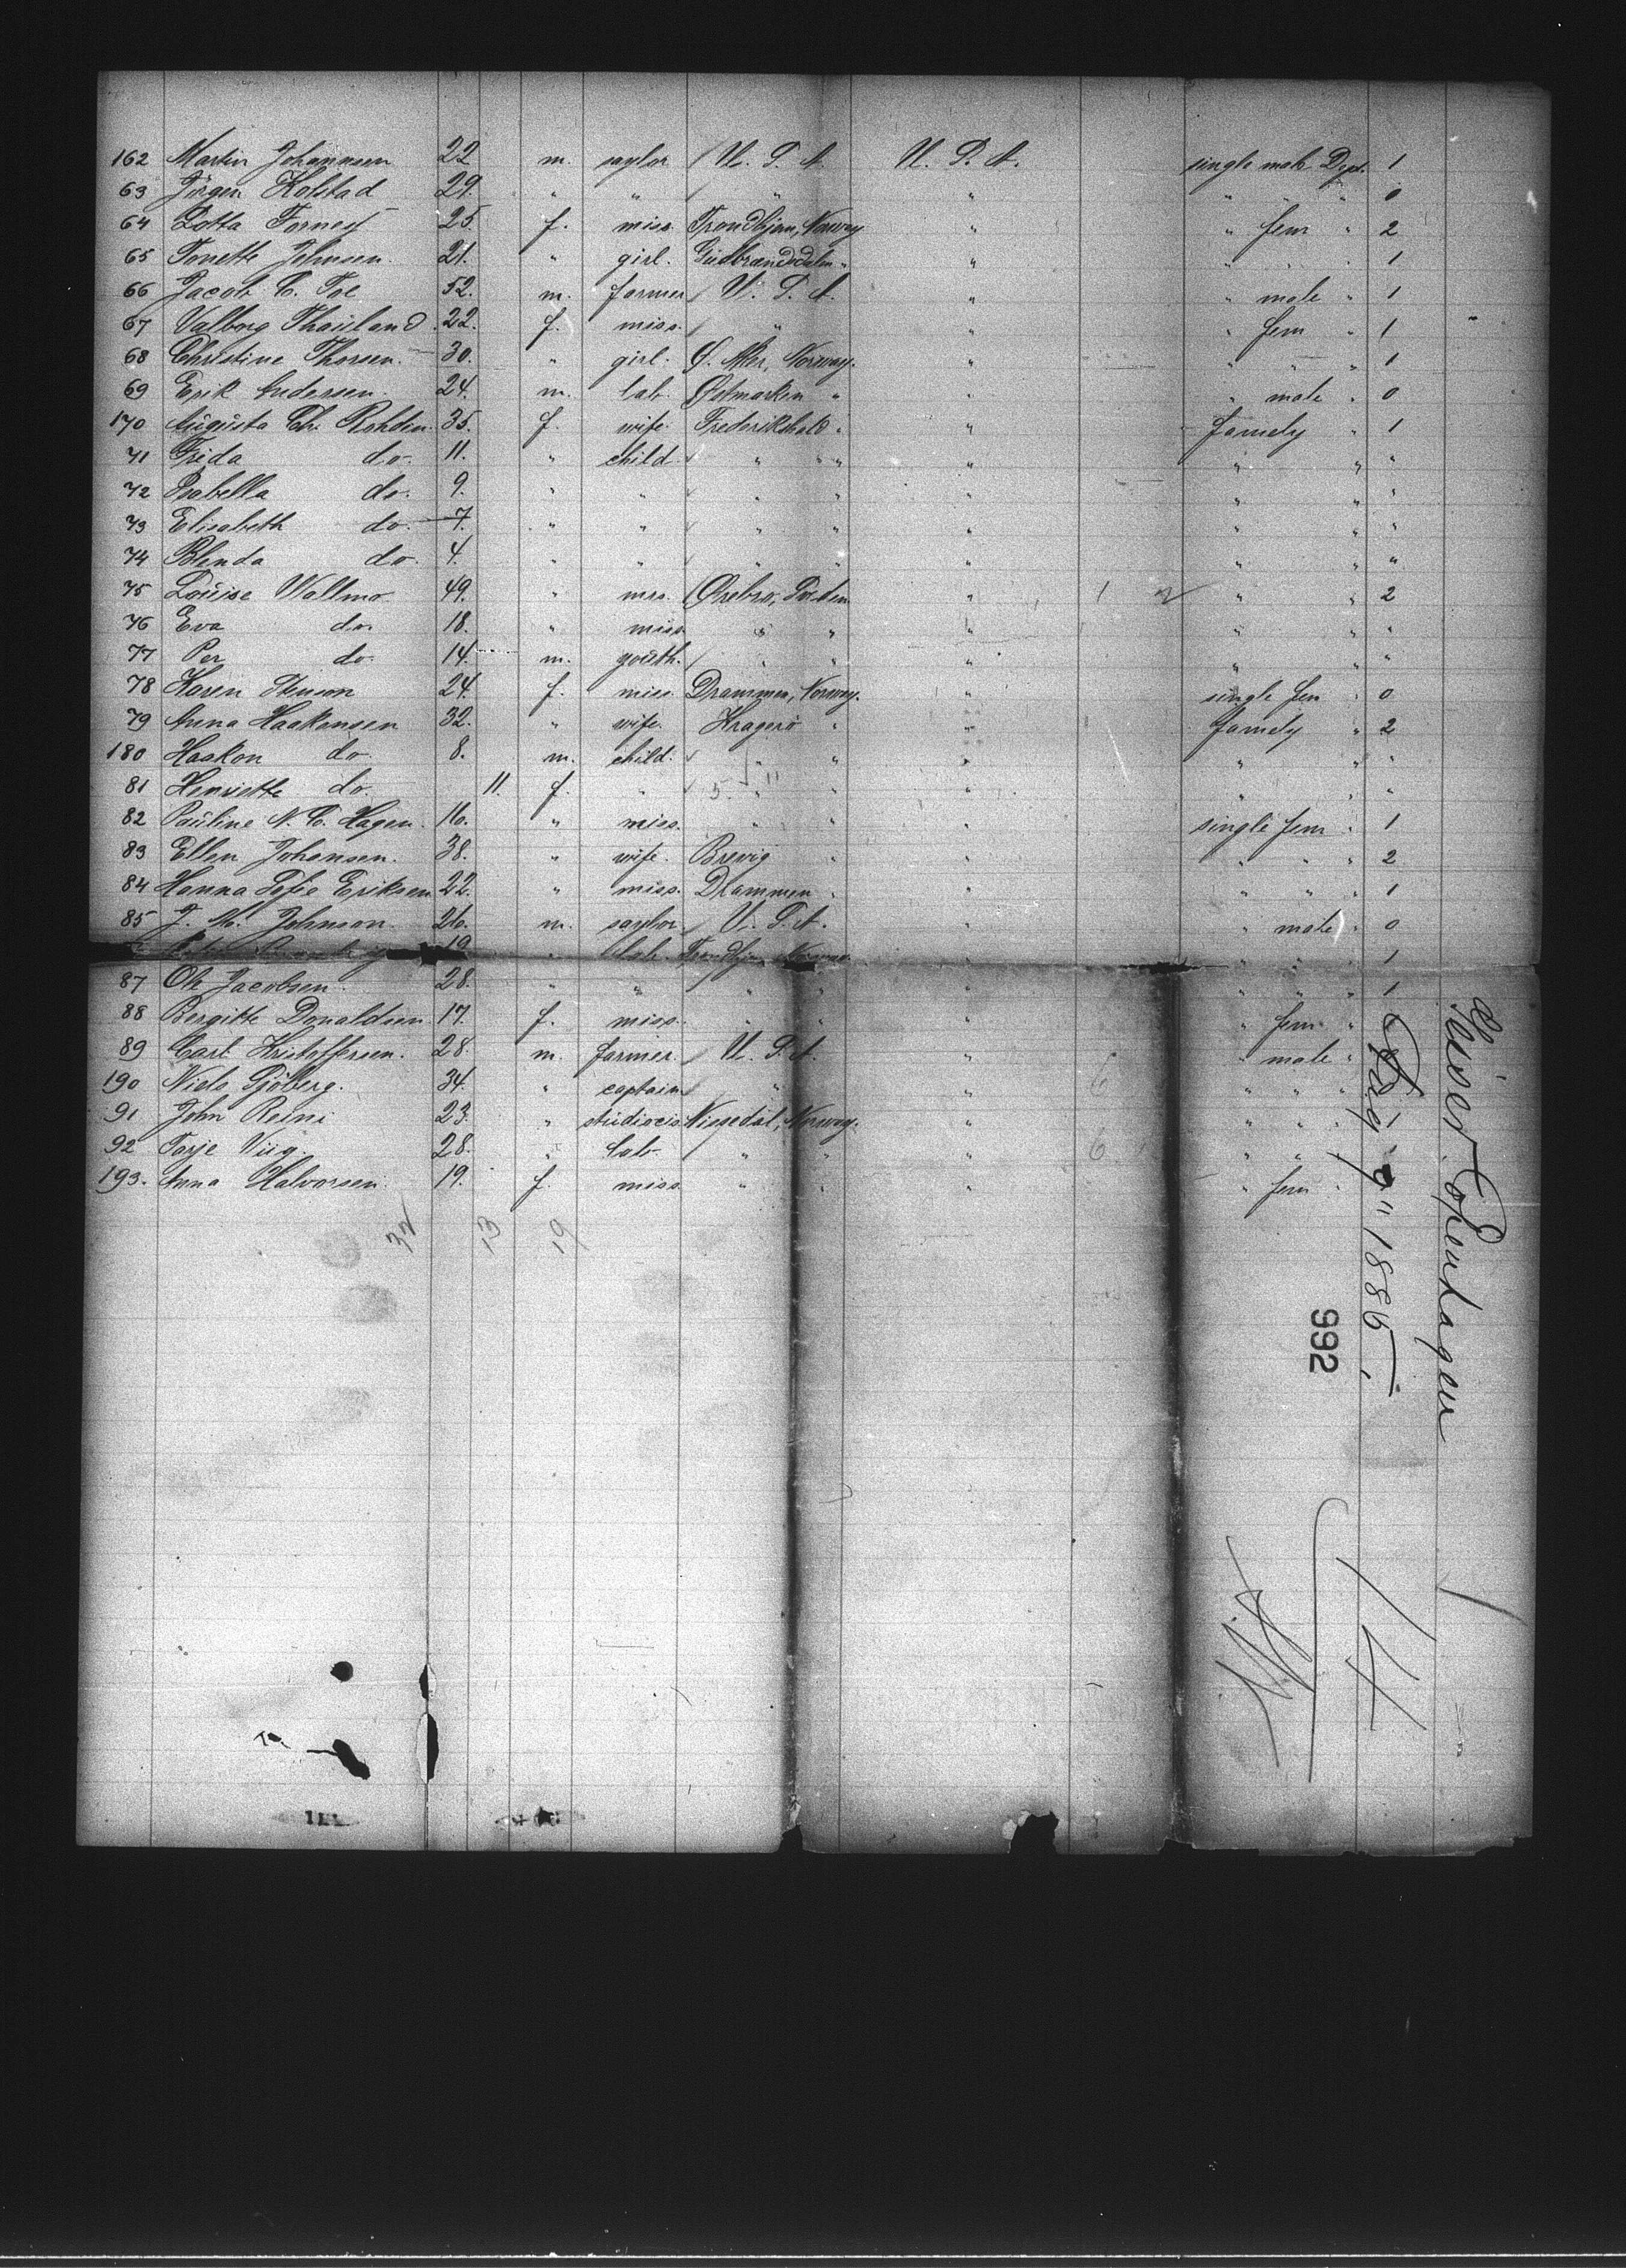 162 Martin Johannsen 22 m. saylor / U. S. A. U. S. A. single male Dept. 1
63 Jörgen Kolstad 29. " " / " " " " " 0
64 Lotta Fornes 25. f. miss. Trondhjem, Norway " " fem " 2
65 Tonette Johnsen. 21. " girl. Gudbrandsdalen " " " " " 1
66 Jacob C. Toe 52. m. farmer / U. S. A. " " male " 1
67 Valborg Thauland. 22. f. miss. / " " " fem " 1
68 Christine Thorsen. 30. " girl. Ø. Aker, Norway. " " " " 1
69 Erik Andersen. 24. m. lab. Østmarken " " " male " 0
170 Augusta Ch. Rohdin. 35. f. wife. Frederikshald " " famely " 1
71 Frida do. 11. " child. " " " " " " "
72 Isabella do. 9. " " " " " " " "
73 Elisabeth do. 7. " " " " " " " "
74 Blenda do. 4. " " " " " " " "
75 Louise Wallmo 49. " mrs. Ørebro, Sveden " 1 2 " " 2
76 Eva do. 18. " miss " " " " " "
77 Per do. 14. m. youth. / " " " " " "
78 Karen Stenson 24. f. miss. Drammen, Norway. " single fem " 0
79 Anna Haakensen 32. " wife. Kragerö " " famely " 2
180 Haakon do. 8. m. child. " " " " " "
81 Henriette do. 11. f. " 5. " " " " " "
82 Pauline N. C. Hagen. 16. " miss. " " " single fem " 1
83 Ellen Johansen. 38. " wife. Brevig " " " " " 2
84 Hanna Sofie Eriksen 22. " miss. Drammen " " " " " 1
85 J. M. Johnson. 26. m. saylor / U. S. A. " " male " 0
19 " lab. Trondhjem, Norway " " " " 1
87 Ole Jacobsen. 28. " " " " " " " " 1
88 Bergitte Donaldsen. 17. f. miss. " " " " fem "
89 Carl Kristoffersen. 28. m. farmer. / U. S. A. " " male "
190 Niels Sjöberg. 34. " captain / " " 6 " " "
91 John Reini 23. " studiosis Nissedal, Norway. " " " "
92 Tarje Viig. 28. " lab. / " " " 6 " " "
193. Anna Halvorsen. 19. f. miss. " " " " fem "
32 13 19
Geiser. Copenhagen
9" 1886
992
14